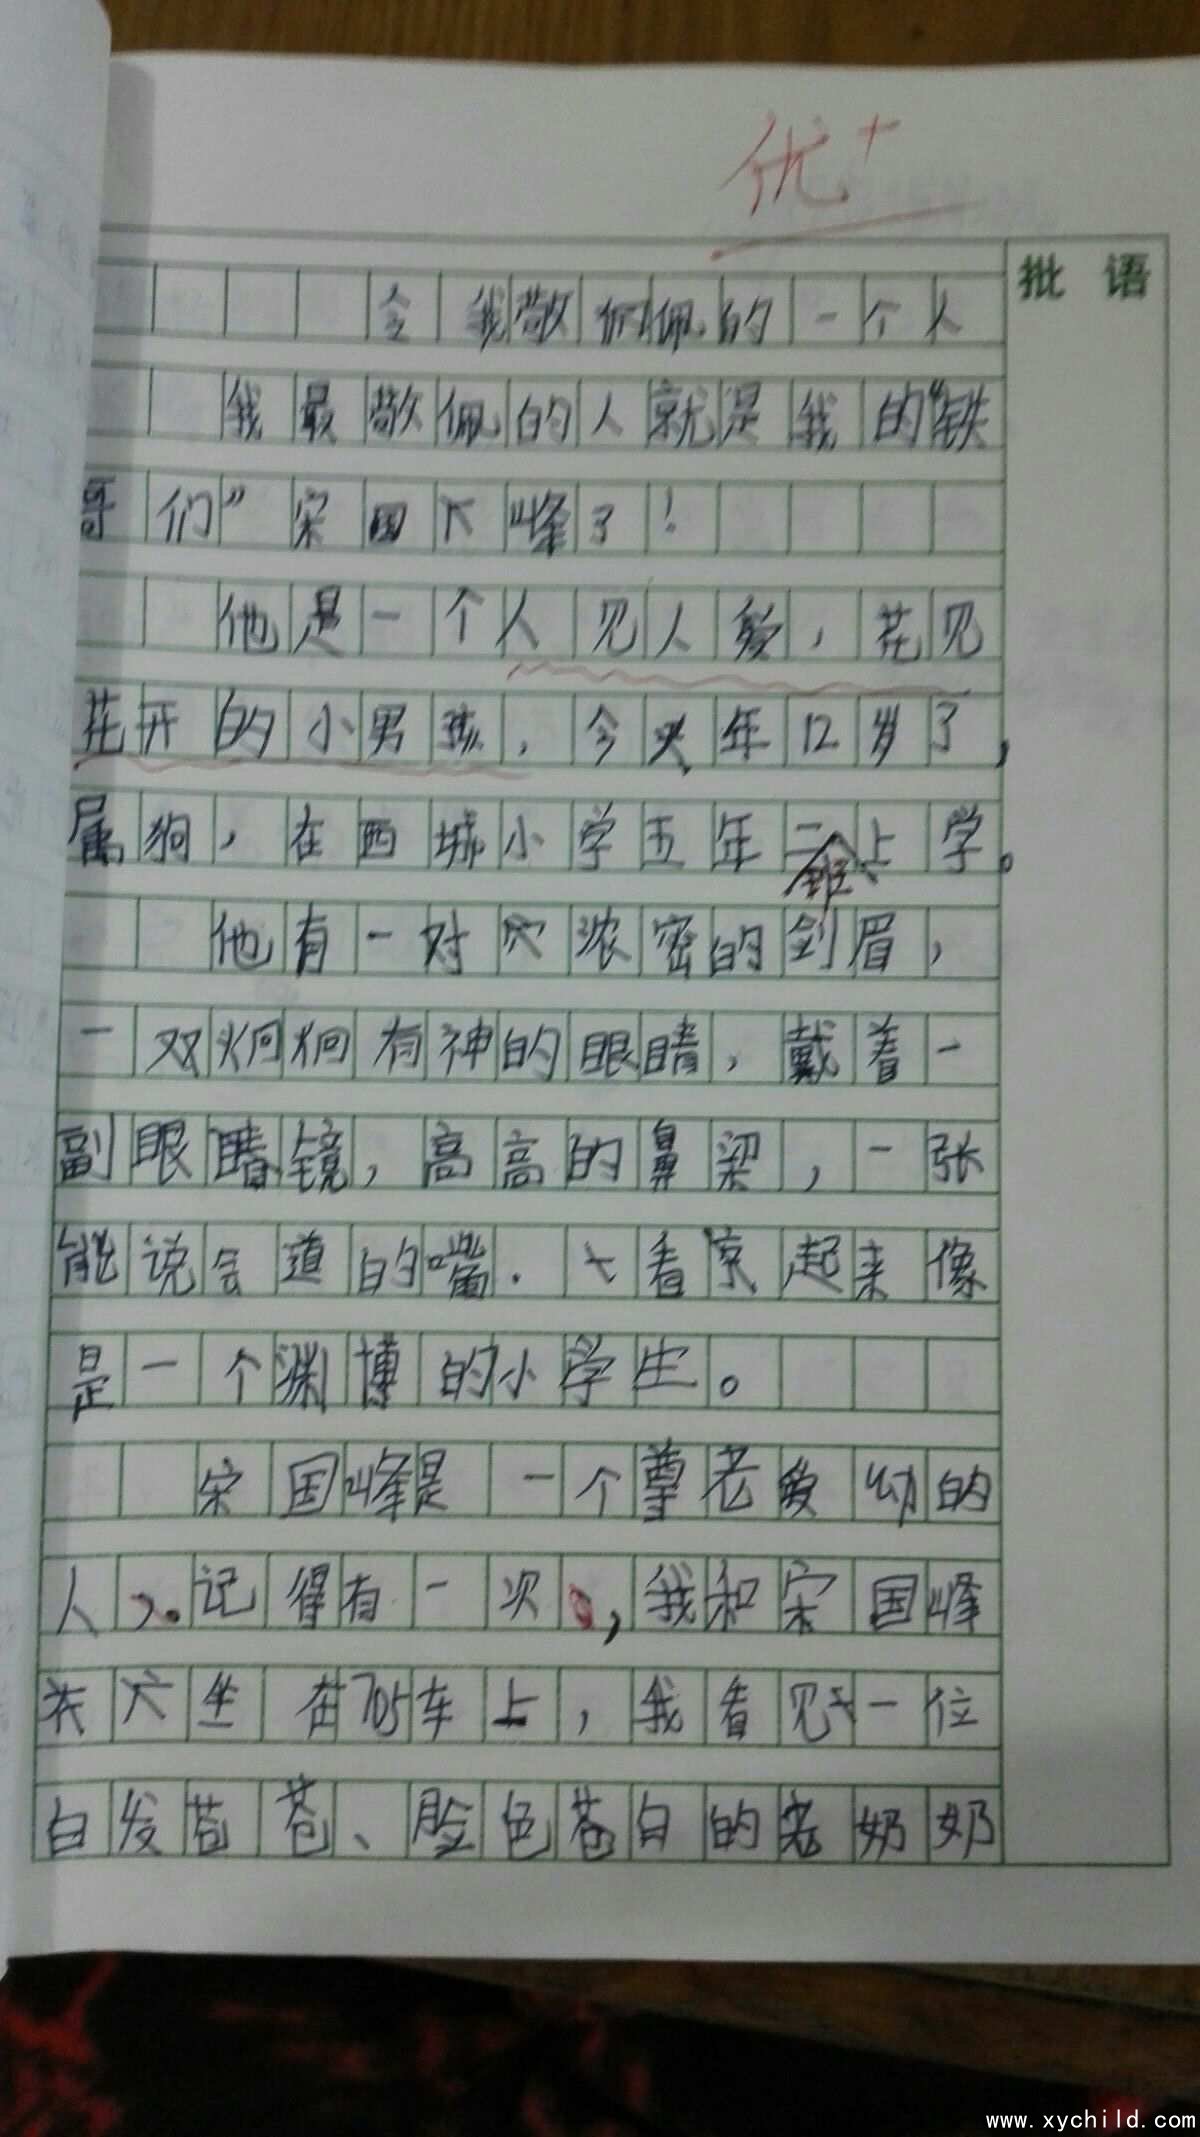 优+
批 语
令我敬佩的一个人
我最敬佩的人就是我的“铁
哥们”宋国峰了！
他是一个人见人爱，花见
花开的小男孩，今年12岁了，
属狗，在西城小学五年二班上学。
他有一对浓密的剑眉，
一双炯炯有神的眼睛，戴着一
副眼镜，高高的鼻梁，一张
能说会道的嘴．看起来像
是一个渊博的小学生。
宋国峰是一个尊老爱幼的
人。记得有一次，我和宋国峰
坐在705车上，我看见一位
白发苍苍、脸色苍白的老奶奶
www.xychild.com